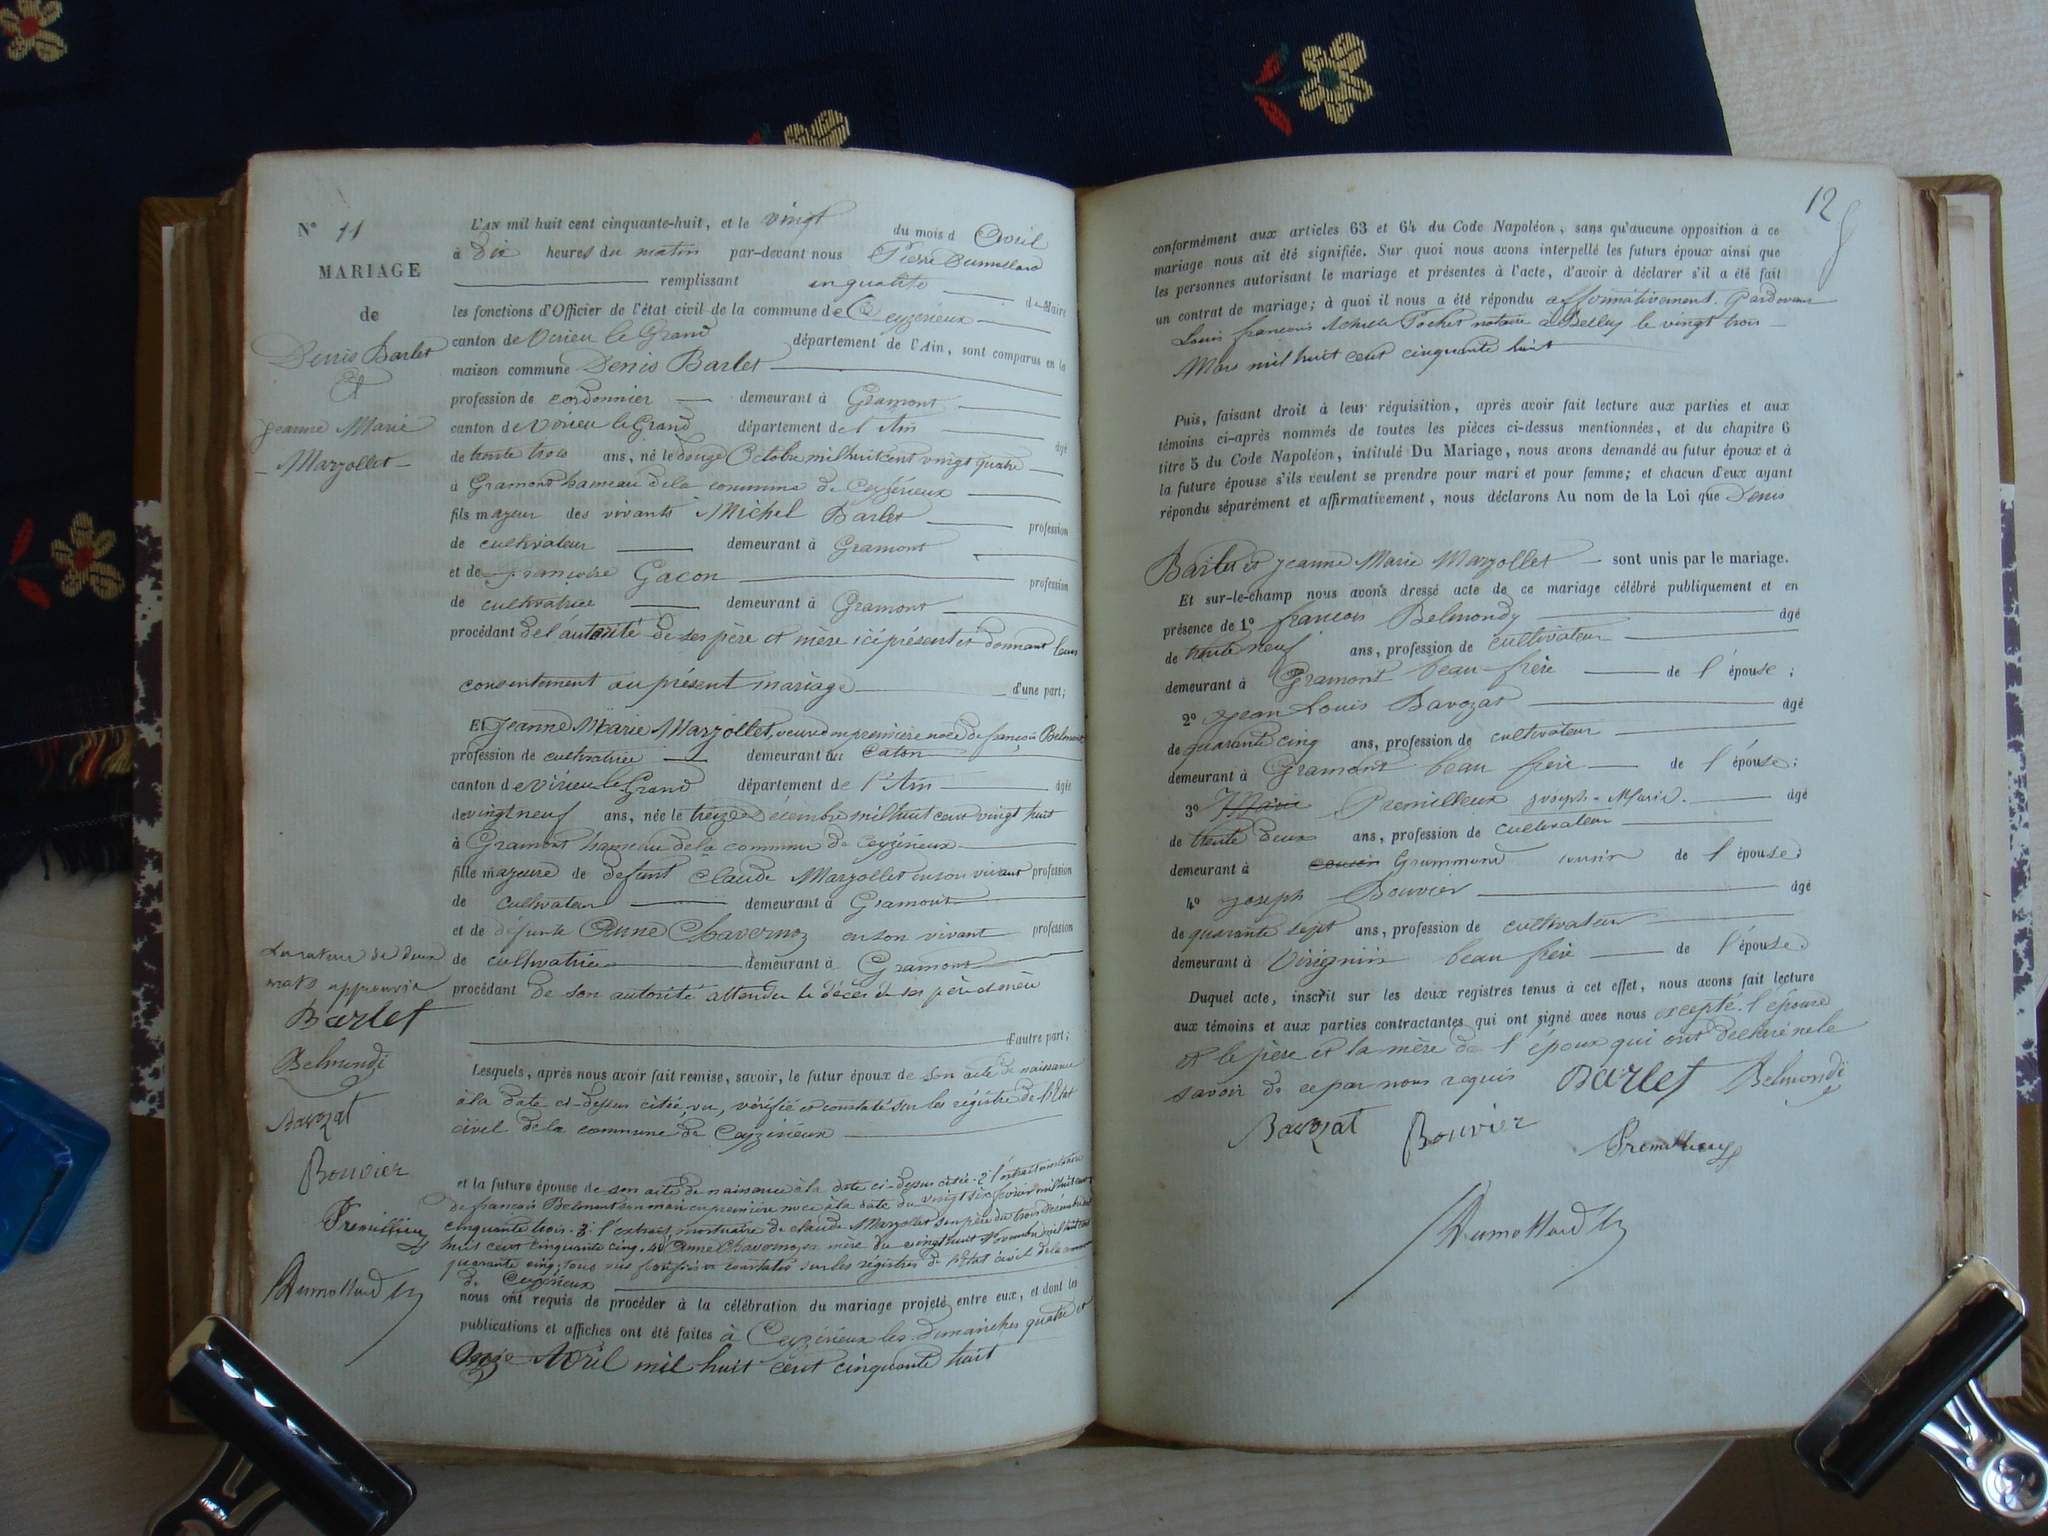 N° 11
MARIAGE
de
Denis Barlet
Et
Jeanne Marie
Marzollet
La rature de deux
mots approuvée
Barlet
Belmondi
Bavozat
Bouvier
Premillieux
Dumollard
L'AN mil huit cent cinquante-huit, et le vingt du mois d Avril
à dix heures du matin par-devant nous Pierre Dumollard
remplissant en qualité de Maire
les fonctions d'Officier de l'état civil de la commune de Ceyzérieux
canton de Virieu le Grand département de l'Ain, sont comparus en la
maison commune Denis Barlet
profession de cordonnier demeurant à Gramont
canton de Virieu le Grand département de l'Ain âgé
de trente trois ans, né le douze Octobre mil huit cent vingt quatre
à Gramont hameau de la commune de Ceyzérieux
fils majeur des vivants Michel Barlet profession
de cultivateur demeurant à Gramont
et de françoise Gacon profession
de cultivatrice demeurant à Gramont
procédant de l'autorité de ses père et mère ici présent et donnant leur
consentement au présent mariage d'une part;
Et Jeanne Marie Marzollet, veuve en première noce de françois Belmont
profession de cultivatrice demeurant au Caton
canton de Virieu le Grand département de l'Ain âgée
de vingt neuf ans, née le treize Décembre mil huit cent vingt huit
à Gramont hameau de la commune de Ceyzérieux
fille majeure de defunt Claude Marzollet en son vivant profession
de cultivateur demeurant à Gramont
et de défunte Anne Chavernoz en son vivant profession
de cultivatrice demeurant à Gramont
procédant de son autorité attendu le décès de ses père et mère
d'autre part;
Lesquels, après nous avoir fait remise, savoir, le futur époux de son acte de naissance
à la date ci-dessus citée, vu, vérifié et constaté sur les régistre de l'Etat
civil de la commune de Ceyzérieux
et la future épouse de son acte de naissance à la date ci-dessus citée 2° l'extrait mortuaire
de françois Belmont son mari en première noce à la date du vingt six février mil huit cent
cinquante trois. 3° l'extrait mortuaire de claude Marzollet son père du trois Décembre mil
huit cent cinquante cinq. 4° Anne Chavernoz sa mère du vingt huit Novembre mil huit cent
quarante cinq, tous vus vérifiés et constatés sur les régistres de l'Etat civil de la commune
de Ceyzérieux
nous ont requis de procéder à la célébration du mariage projeté entre eux, et dont les
publications et affiches ont été faites à Ceyzérieux les dimanches quatre et
Onze Avril mil huit cent cinquante huit
12
conformément aux articles 63 et 64 du Code Napoléon, sans qu'aucune opposition à ce
mariage nous ait été signifiée. Sur quoi nous avons interpellé les futurs époux ainsi que
les personnes autorisant le mariage et présentes à l'acte, d'avoir à déclarer s'il a été fait
un contrat de mariage; à quoi il nous a été répondu affirmativement. Pardevant
Louis françois Achille Pochet notaire à Belley le vingt trois
Mars mil huit cent cinquante huit
Puis, faisant droit à leur réquisition, après avoir fait lecture aux parties et aux
témoins ci-après nommés de toutes les pièces ci-dessus mentionnées, et du chapitre 6
titre 5 du Code Napoléon, intitulé Du Mariage, nous avons demandé au futur époux et à
la future épouse s'ils veulent se prendre pour mari et pour femme; et chacun d'eux ayant
répondu séparément et affirmativement, nous déclarons Au nom de la Loi que Denis
Barlet et Jeanne Marie Marzollet sont unis par le mariage.
Et sur-le-champ nous avons dressé acte de ce mariage célébré publiquement et en
présence de 1° francois Belmondy âgé
de trente neuf ans, profession de cultivateur
demeurant à Gramont beau frère de l'épouse;
2° Jean Louis Bavozat âgé
de quarante cinq ans, profession de cultivateur
demeurant à Gramont beau frère de l'épouse;
3° Marie Premillieux Joseph-Marie. âgé
de trente deux ans, profession de cultivateur
demeurant à cousin Grammond cousin de l'épouse;
4° Joseph Bouvier âgé
de quarante sept ans, profession de cultivateur
demeurant à Virignin beau frère de l'épouse.
Duquel acte, inscrit sur les deux registres tenus à cet effet, nous avons fait lecture
aux témoins et aux parties contractantes qui ont signé avec nous excepté l'épouse
et le père et la mère de l'époux qui ont declaré ne le
savoir de ce par nous requis Barlet Belmondi
Bavozat Bouvier Premillieux
Dumollard